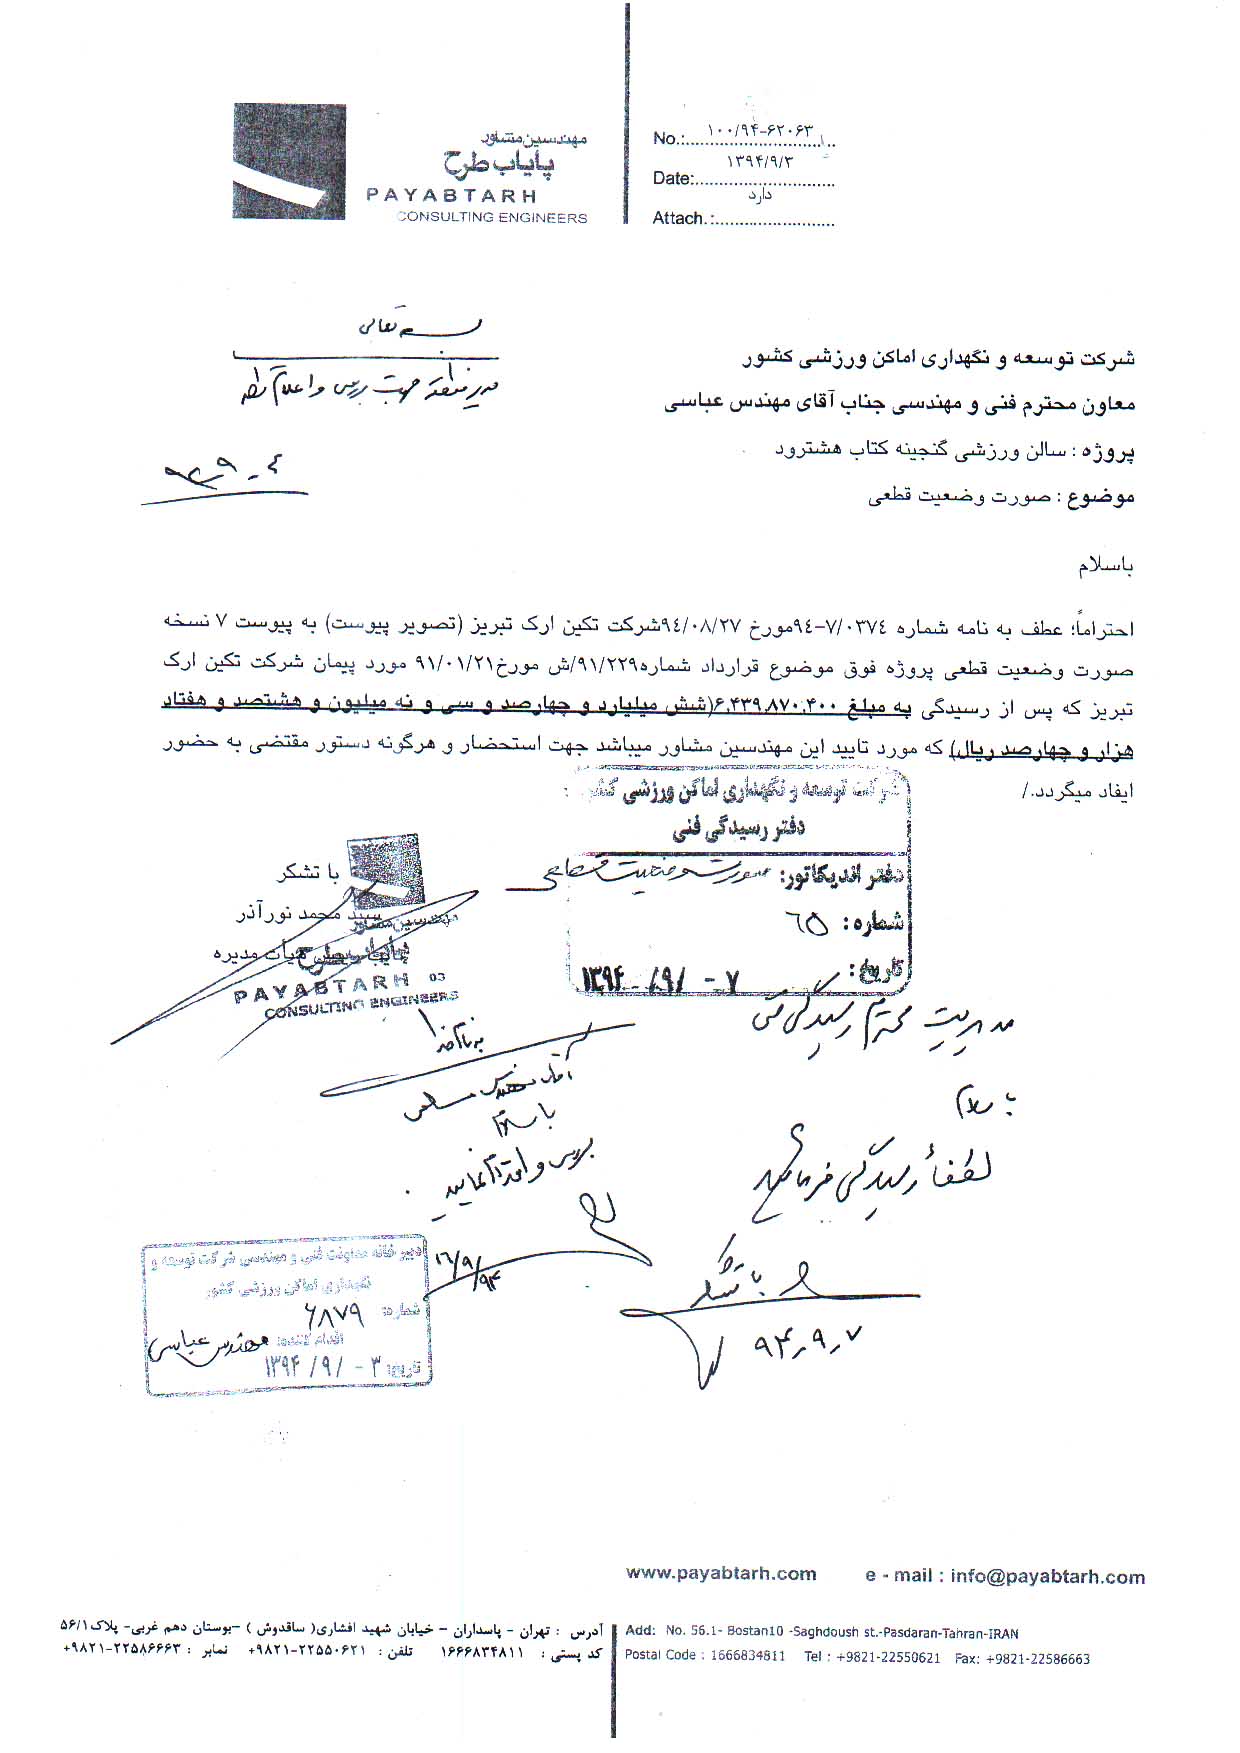 مهندسین مشاور
پایاب طرح
PAYABTARH
CONSULTING ENGINEERS
No.: ۱۰۰/۹۴-۶۲۰۶۳
Date: ۱۳۹۴/۹/۳
Attach.: دارد
بسمه تعالی
مدیر منطقه جهت بررسی و اعلام نظر
شرکت توسعه و نگهداری اماکن ورزشی کشور
معاون محترم فنی و مهندسی جناب آقای مهندس عباسی
پروژه : سالن ورزشی گنجینه کتاب هشترود
موضوع : صورت وضعیت قطعی
باسلام
احتراماً؛ عطف به نامه شماره ۹٤-۷/۰۳۷٤مورخ ۹٤/۰۸/۲۷شرکت تکین ارک تبریز (تصویر پیوست) به پیوست ۷ نسخه
صورت وضعیت قطعی پروژه فوق موضوع قرارداد شماره۹۱/۲۲۹/ش مورخ۹۱/۰۱/۲۱ مورد پیمان شرکت تکین ارک
تبریز که پس از رسیدگی به مبلغ ۶،٤۳۹،۸۷۰،٤۰۰(شش میلیارد و چهارصد و سی و نه میلیون و هشتصد و هفتاد
هزار و چهارصد ریال) که مورد تایید این مهندسین مشاور میباشد جهت استحضار و هرگونه دستور مقتضی به حضور
ایفاد میگردد./
شرکت توسعه و نگهداری اماکن ورزشی کشور
دفتر رسیدگی فنی
دفتر اندیکاتور: صورت وضعیت قطعی
شماره: ۶۵
تاریخ: ۱۳۹۴/۹/-۷
با تشکر
سید محمد نورآذر
هیأت مدیره
مهندسین مشاور
پایاب طرح
PAYABTARH 03
CONSULTING ENGINEERS
مدیریت محترم رسیدگی فنی
با سلام
لطفاً رسیدگی فرمائید
با تشکر
۹۴_۹_۷
بنام خدا
آقای مهندس
با سلام
بررسی و اقدام نمایید.
۱۶/۹/۹۴
دبیر خانه معاونت فنی و مهندسی شرکت توسعه و
نگهداری اماکن ورزشی کشور
شماره: ۶۸۷۹
اقدام کننده: مهندس عباسی
تاریخ: ۱۳۹۴/۹/-۳
www.payabtarh.com e - mail : info@payabtarh.com
آدرس : تهران - پاسداران - خیابان شهید افشاری( ساقدوش ) -بوستان دهم غربی- پلاک۵۶/۱
کد پستی : ۱۶۶۶۸۳۴۸۱۱ تلفن : ۹۸۲۱-۲۲۵۵۰۶۲۱+ نمابر : ۹۸۲۱-۲۲۵۸۶۶۶۳+
Add: No. 56.1- Bostan10 -Saghdoush st.-Pasdaran-Tahran-IRAN
Postal Code : 1666834811 Tel : +9821-22550621 Fax: +9821-22586663